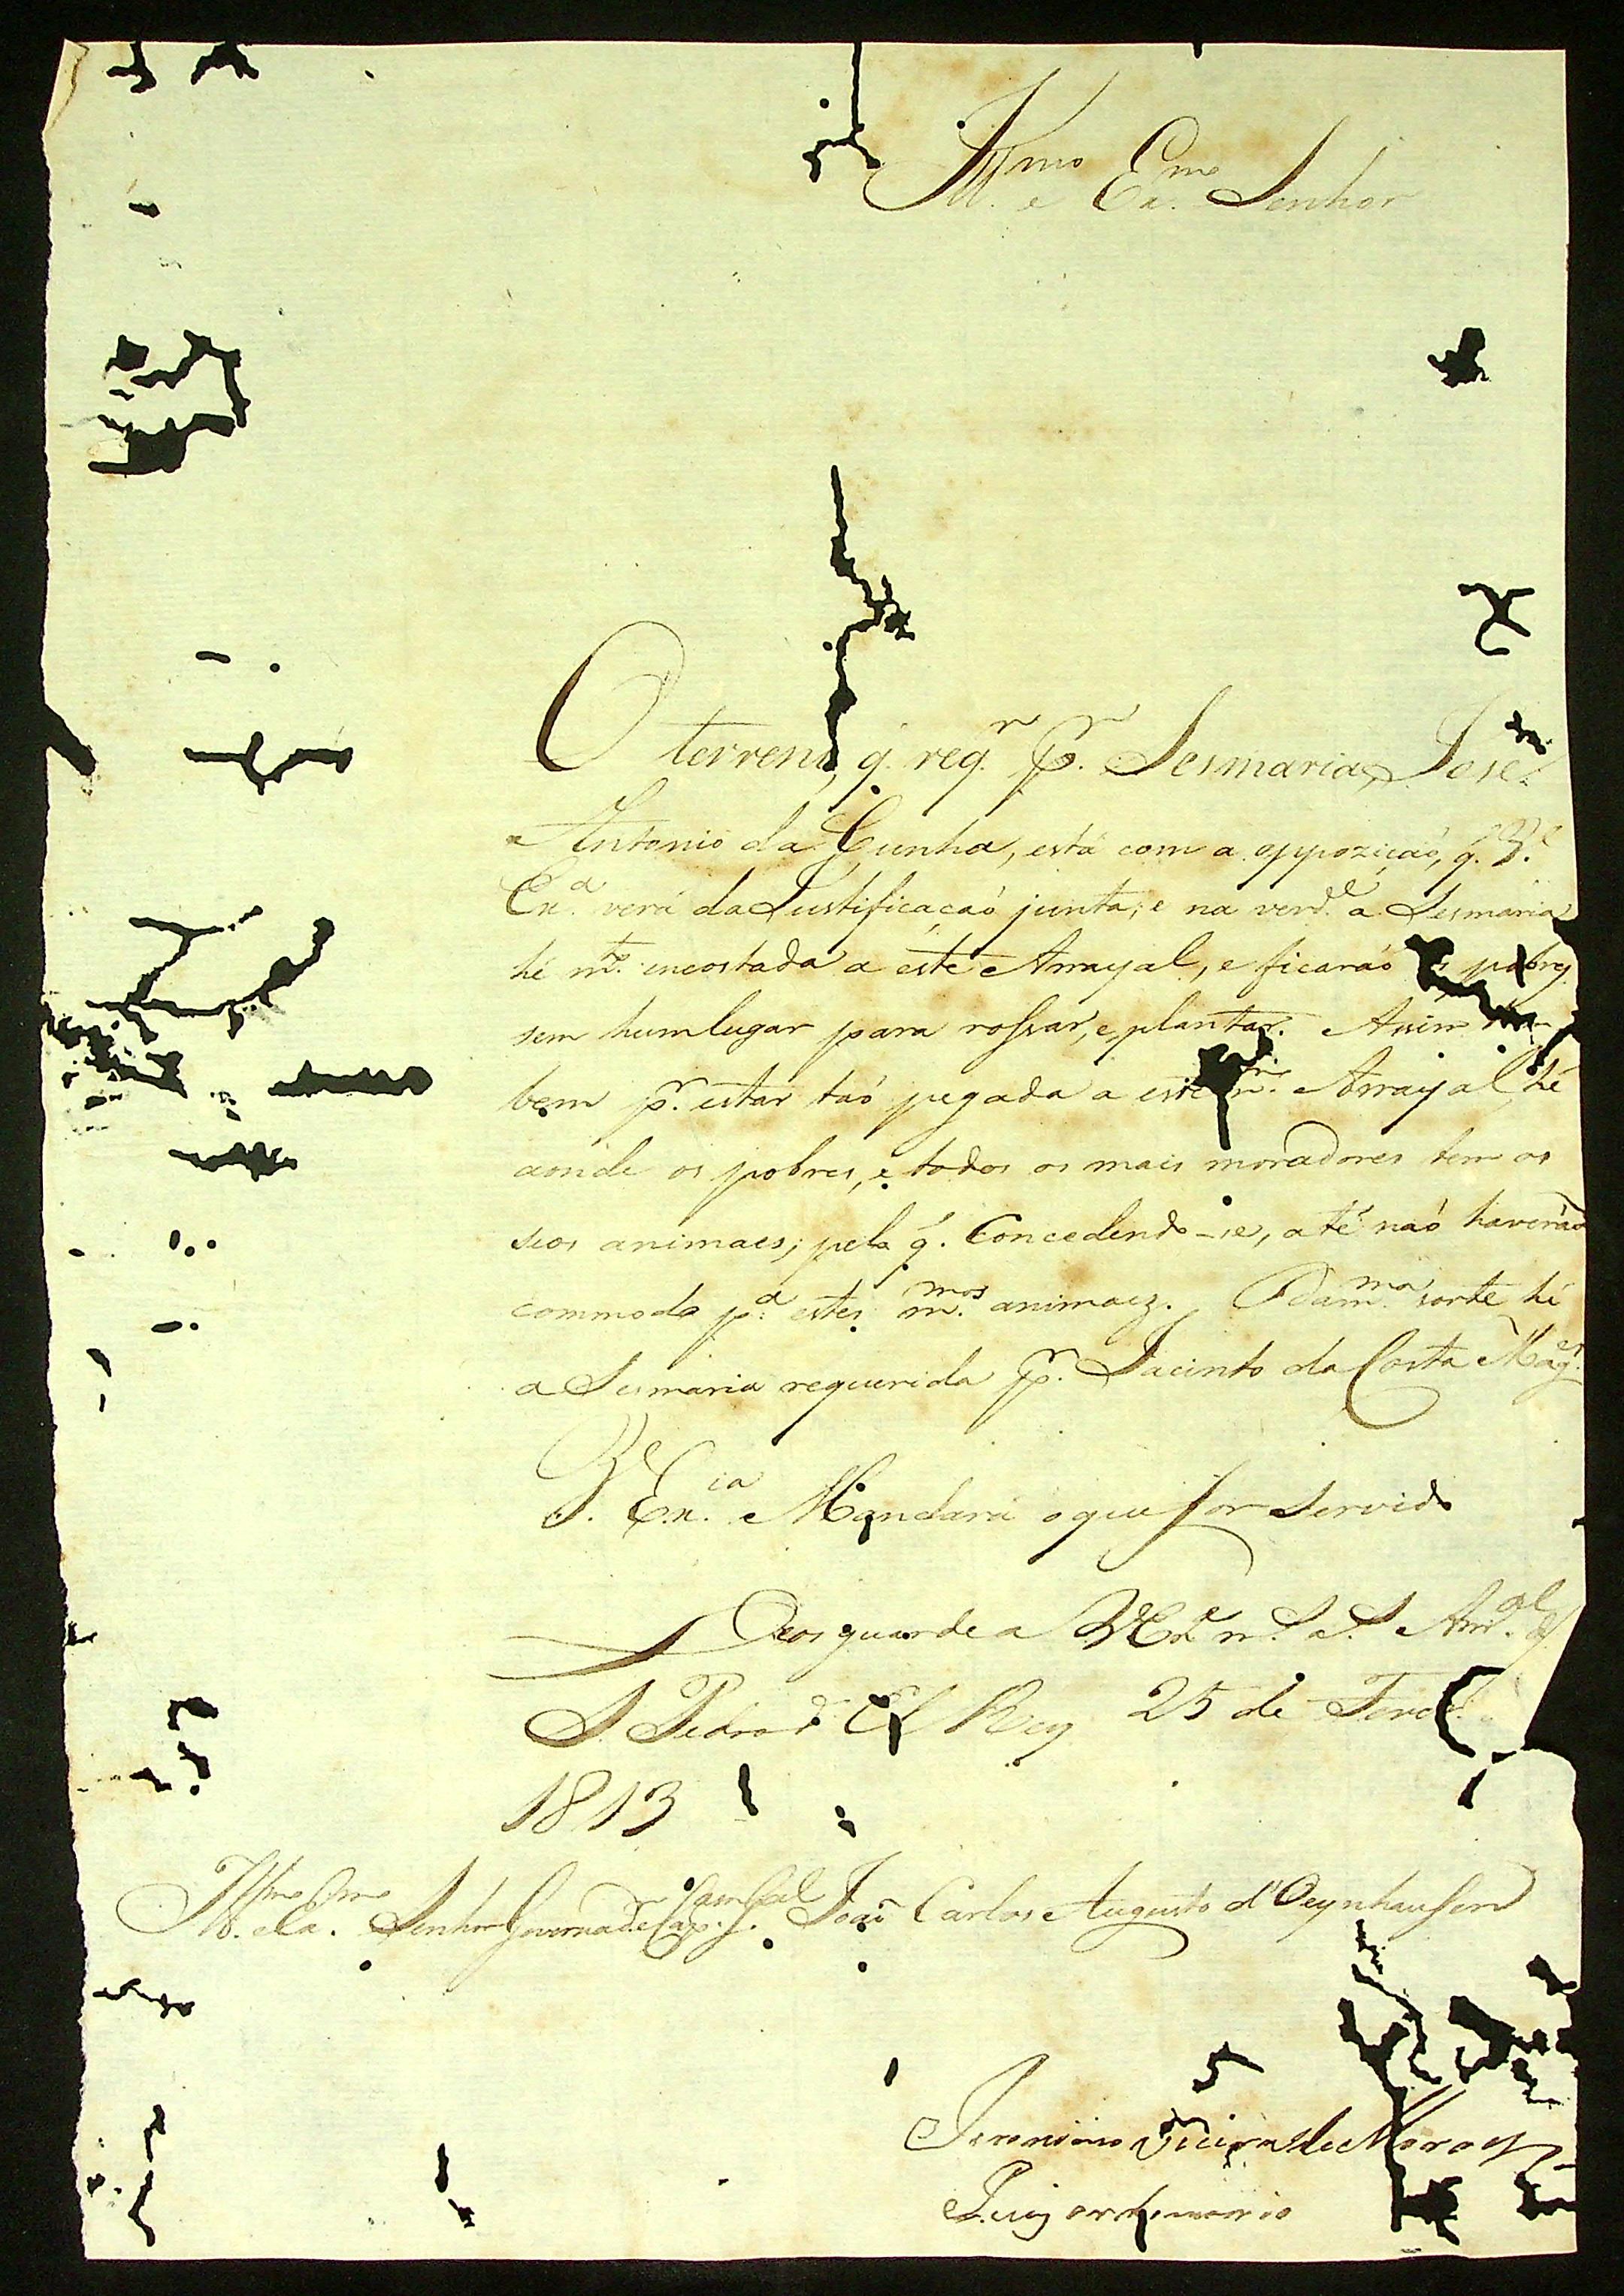 Ill.mo e Ex.mo Senhor
O terreno, q. req.r p.r Sesmaria José
Antonio da Cunha, está com a oppozição, q. V.
Ex.a verá da Justificação junta; e na verd.e a Sesmaria
hé m.to encostada a este Arrayal, e ficaráo os pobres
sem hum lugar para rossar, e plantar. Assim tam
bem p.r estar taó pegada a este m.mo Arrayal, hé
aonde os pobres, e todos os mais moradores tem os
seos animaes; pelo q. Concedendo-se, até naó haverão
commodo p.a estes m.mos animaez. Da m.ma sorte hé
a Sesmaria requerida p.r Jacinto da Costa
V. Ex.cia Mandará o que for Servido
Deos guarde a V. Ex.a m.s a.s Arr.al de
S. Pedro d' El Rey 25 de Fever.o
1813
Ill.mo e Ex.mo Senhor Governad.r e Cap.am G.al João Carlos Augusto d'Oeynhausen
Jeronimo Vieira de Moraes
Juiz ordinario